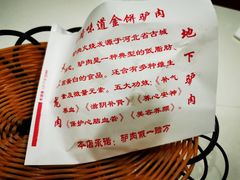 味道金饼驴肉
驴肉火烧发源于河北省古城
驴肉是一种典型的低脂肪
蛋白的食品。还含有多种维生
素及微量元素。五大功效:《补气
养血》《滋阴补肾》《养心安神》
《保护心脑血管》《美容养颜》
本店承诺:驴肉假一赔万
天上龙肉
地下驴肉